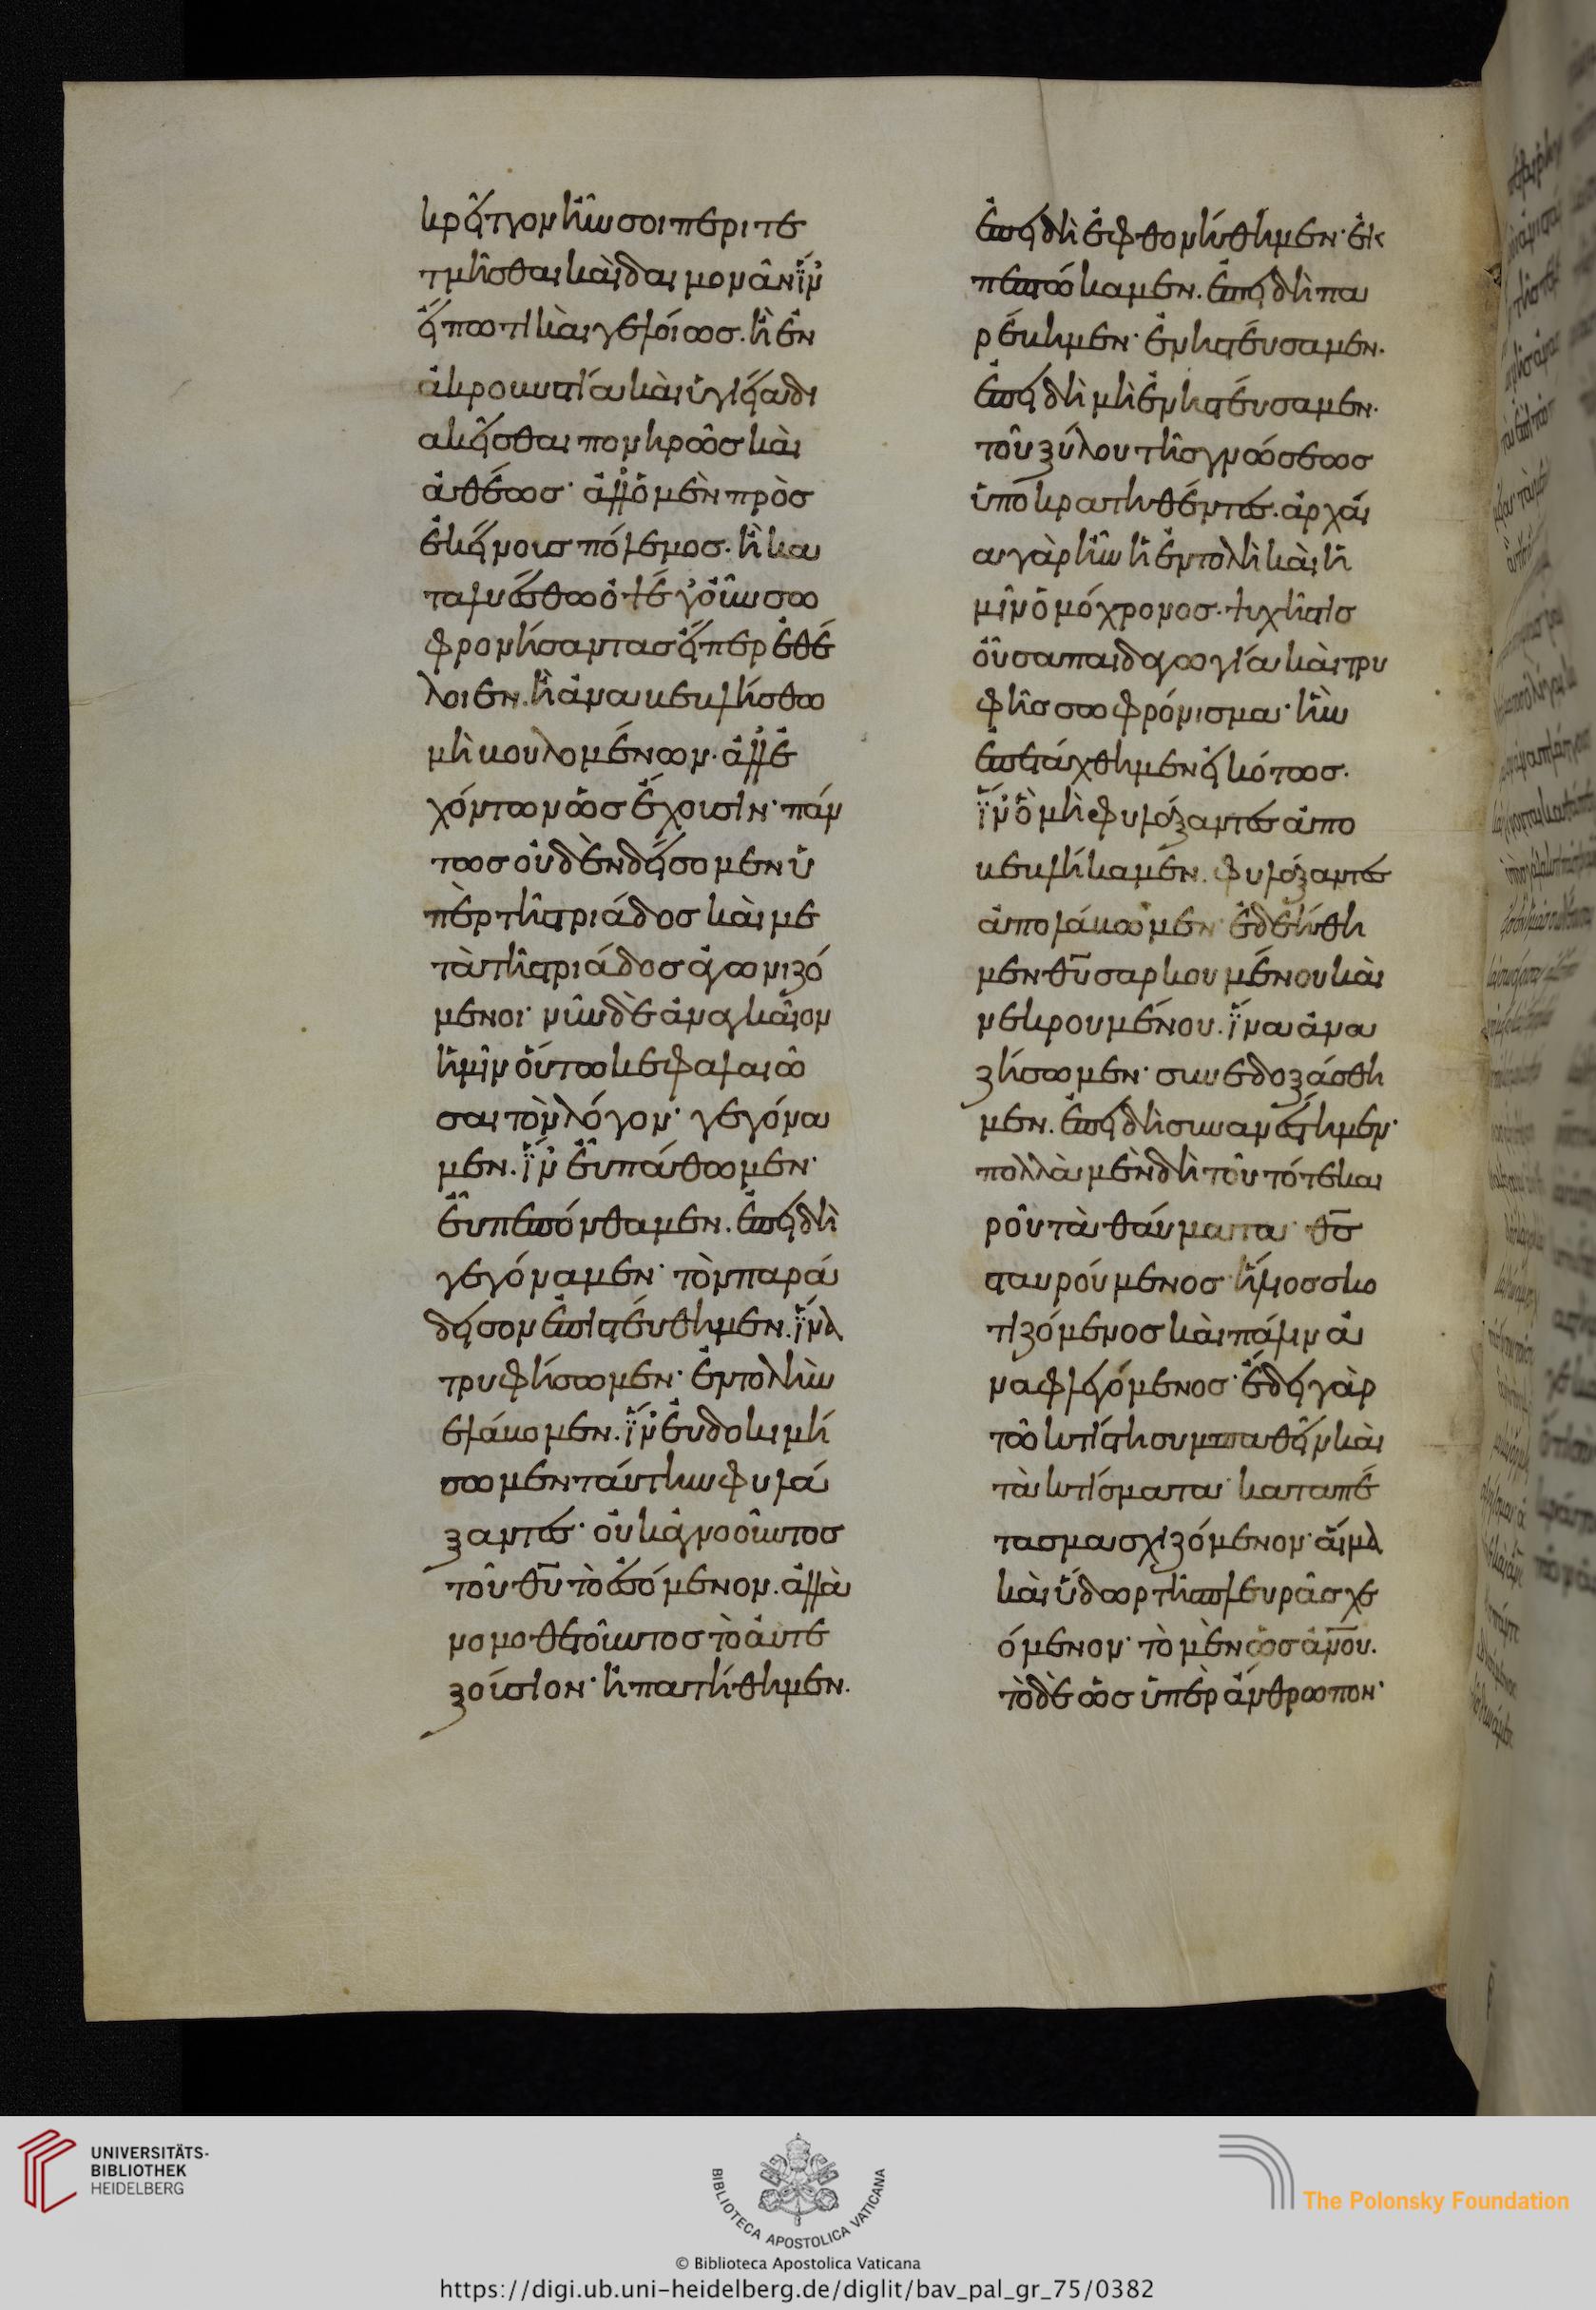 κρεῖττον ἦν σοι περιτε
τμῆσθαι καὶ δαιμονᾶν ἵν
εἴπω τι καὶ γελοίως. ἢ ἐν
ἀκροβυστία καὶ ὑγιεία δι
ακεῖσθαι πονηρῶς καὶ
ἀθέως· ἀλλ' ὁ μὲν πρὸς
ἐκείνοις πόλεμος. ἢ κα
ταλυέσθω ὀψέ γ' οὖν σω
φρονήσαντας εἴπερ ἐθέ
λοιεν. ἢ ἀναβεβλήσθω
μὴ βουλομένων· ἀλλ' ἐ
χόντων ὡς ἔχουσιν· πάν
τως οὐδὲν δείσομεν ὑ
πὲρ τῆς τριάδος καὶ με
τὰ τῆς τριάδος ἀγωνιζό
μενοι· νῦν δὲ ἀναγκαῖον
ἡμῖν οὕτω κεφαλαιῶ
σαι τὸν λόγον· γεγόνα
μεν. ἵν' εὖ πάθωμεν·
εὖ πεπόνθαμεν. ἐπειδὴ
γεγόναμεν· τὸν παρά
δεισον ἐπιστεύθημεν. ἵνα
τρυφήσωμεν· ἐντολὴν
ἐλάβομεν. ἵν' εὐδοκιμή
σωμεν ταύτην φυλά
ξαντες· οὐκ ἀγνοοῦντος
τοῦ θυ τὸ ἐσόμενον. ἀλλὰ
νομοθετοῦντος τὸ αὐτε
ξούσιον· ἠπατήθημεν.
ἐπειδὴ ἐφθονήθημεν· ἐκ
πεπτώκαμεν. ἐπειδὴ πα
ρέβημεν· ἐνηστεύσαμεν.
ἐπειδὴ μὴ ἐνηστεύσαμεν·
τοῦ ξύλου τῆς γνώσεως
ὑποκρατηθέντες. ἀρχαί
α γὰρ ἦν ἡ ἐντολὴ καὶ ἡ
μῖν ὁμόχρονος. ψυχῆς τις
οὖσα παιδαγωγία καὶ τρυ
φῆς σωφρόνισμα· ἣν
ἐπετάχθημεν εἰκότως.
ἵν' ὃ μὴ φυλάξαντες ἀπο
βεβλήκαμεν. φυλάξαντες
ἀπολάβωμεν· ἐδεήθη
μεν θυ σαρκουμένου καὶ
νεκρουμένου. ἵνα ἀνα
ζήσωμεν· συνεδοξάσθη
μεν. ἐπειδὴ συνανέστημεν·
πολλὰ μὲν δὴ τοῦ τότε και
ροῦ τὰ θαύματα· θς
σταυρούμενος· ἥλιος σκο
τιζόμενος καὶ πάλιν ἀ
ναφλεγόμενος· ἔδει γὰρ
τῶ κτίστη συμπαθεῖν καὶ
τὰ κτίσματα· καταπέ
τασμα σχιζόμενον· αἷμα
καὶ ὕδωρ τῆς πλευρᾶς χε
όμενον· τὸ μὲν ὡς ανου.
τὸ δὲ ὡς ὑπὲρ ἄνθρωπον·
UNIVERSITÄTS-
BIBLIOTHEK
HEIDELBERG
BIBLIOTECA APOSTOLICA VATICANA
The Polonsky Foundation
© Biblioteca Apostolica Vaticana
https://digi.ub.uni-heidelberg.de/diglit/bav_pal_gr_75/0382